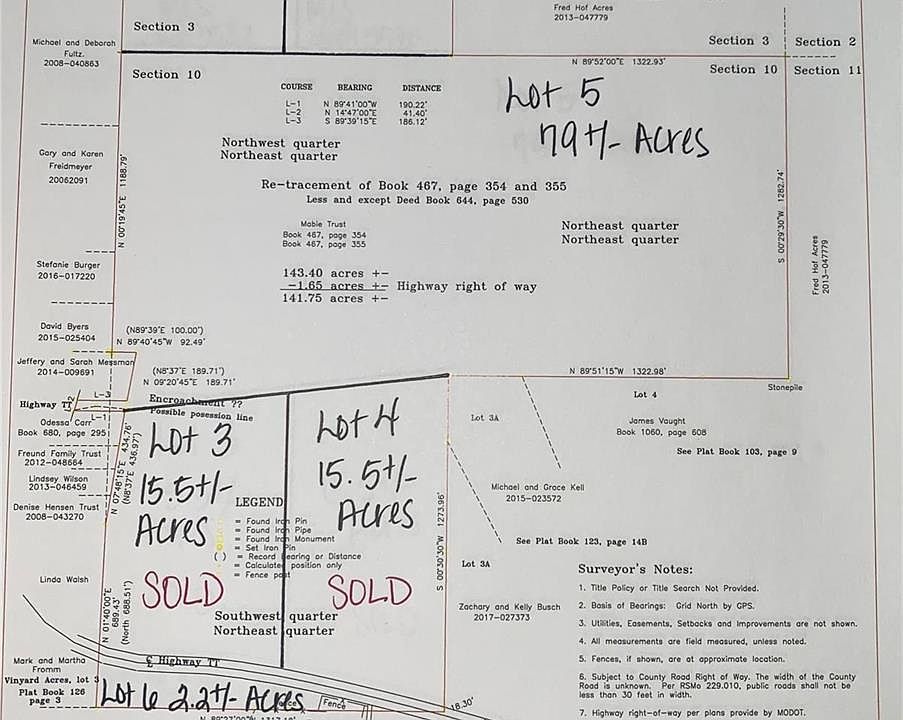 Fred Hof Acres
2013-047779
Section 3
Section 3
Section 2
Michael and Deborah
Fultz.
2008-040863
N 89°52'00"E 1322.93'
Section 10
Section 10
Section 11
COURSE BEARING DISTANCE
L-1 N 89°41'00"W 190.22'
L-2 N 14°47'00"E 41.40'
L-3 S 89°39'15"E 186.12'
Lot 5
79+/- Acres
Northwest quarter
Northeast quarter
Gary and Karen
Freidmeyer
20062091
N 00°19'45"E 1188.79'
Re-tracement of Book 467, page 354 and 355
Less and except Deed Book 644, page 530
S 00°29'30"W 1282.74'
Mable Trust
Book 467, page 354
Book 467, page 355
Northeast quarter
Northeast quarter
Fred Hof Acres
2013-047779
Stefanie Burger
2016-017220
143.40 acres +-
-1.65 acres +- Highway right of way
141.75 acres +-
David Byers
2015-025404
(N89°39'E 100.00')
N 89°40'45"W 92.49'
Jeffery and Sarah Messman
2014-009691
(N8°37'E 189.71')
N 09°20'45"E 189.71'
N 89°51'15"W 1322.98'
Stonepile
L-3
Highway TT
L-1
Encroachment ??
Possible posession line
Odessa Carr
Book 680, page 295
Lot 3
15.5+/-
Acres
SOLD
Lot 4
15.5+/-
Acres
SOLD
Lot 3A
Lot 4
James Vaught
Book 1060, page 608
See Plat Book 103, page 9
Freund Family Trust
2012-048664
Lindsey Wilson
2013-046459
Denise Hensen Trust
2008-043270
N 07°48'15"E 434.76'
(N8°37'E 436.97')
LEGEND
= Found Iron Pin
= Found Iron Pipe
= Found Iron Monument
= Set Iron Pin
( ) = Record Bearing or Distance
= Calculated position only
= Fence post
S 00°30'30"W 1273.96'
Michael and Grace Kell
2015-023572
See Plat Book 123, page 14B
Lot 3A
Zachary and Kelly Busch
2017-027373
Linda Walsh
N 01°40'00"E
689.43'
(North 688.51')
Southwest quarter
Northeast quarter
Surveyor's Notes:
1. Title Policy or Title Search Not Provided.
2. Basis of Bearings: Grid North by GPS.
3. Utilities, Easements, Setbacks and Improvements are not shown.
4. All measurements are field measured, unless noted.
5. Fences, if shown, are at approximate location.
6. Subject to County Road Right of Way. The width of the County
Road is unknown. Per RSMo 229.010, public roads shall not be
less than 30 feet in width.
7. Highway right-of-way per plans provide by MODOT.
Mark and Martha
Fromm
Vinyard Acres, lot 3
Plat Book 126
page 3
Highway TT
Lot 6 2.2+/- Acres
Fence
18.30'